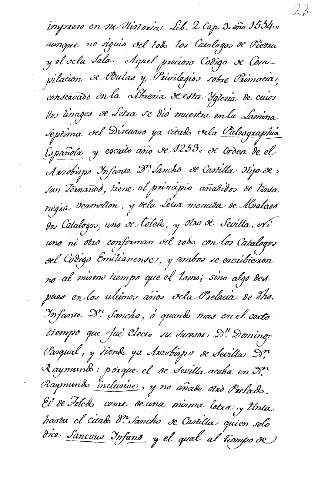 23
impreso en su Historia Lib. 2. Cap. 3. año 1534..
aunque no siguio del todo los Catalogos de Piedra
y el de la Sala. Aquel precioso Codigo de Com-
pilacion de Bulas y Privilegios sobre Primacia,
conservado en la Libreria de esta Yglesia de cuios
dos linages de Letra se dió muestra en la Lamina
septima del Discurso ya citado de la Paleographia
Española y escrito año de 1253: de orden de el
Arzobispo Infante Dn. Sancho de Castilla Hijo de
San Fernando, tiene al principio añadidos de tinta
negra, vermellon, y de la Letra menuda de Alvalaes
dos Catalogos, uno de Toledo, y otro de Sevilla, ni
uno ni otro conforman del todo con los Catalogos
del Codigo Emilianense, y ambos se escribieron
no al mismo tiempo que el tomo; sino algo des-
pues en los ultimos años de la Prelacia de dho.
Infante Dn. Sancho, ó quando mas en el corto
tiempo que fué Electo su sucesor Dn. Domingo
Pasqual, y siendo ya Arzobispo de Sevilla Dn.
Raymundo: porque el de Sevilla acaba en Dn.
Raymundo inclusive, y no añade otro Prelado.
El de Toledo corre de una misma letra y tinta
hasta el citado Dn. Sancho de Castilla quien solo
dice Sancius Infans y el qual al tiempo de